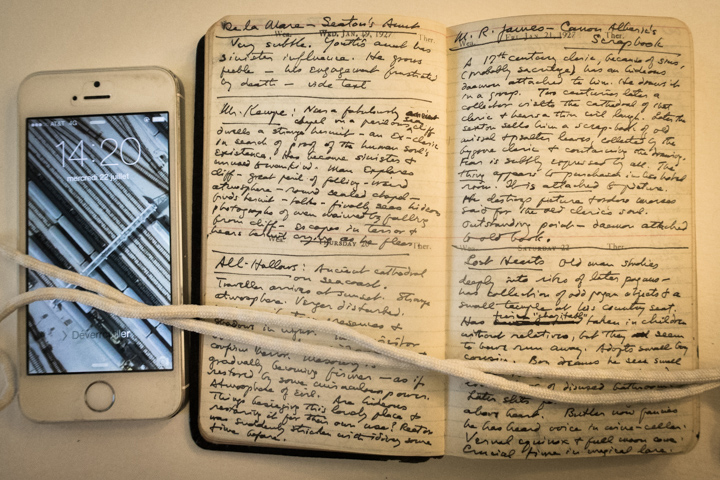 14:20
mercredi 22 juillet
Déverrouiller
De la Mare – Seaton's Aunt
Wed. Jan. 19, 1927 Ther.
Very subtle. Youth's aunt has
sinister influence. He grows
feeble – his engagement frustrated
by death – vide text
Mr. Kempe: Near a fabulously ancient
chapel on a perilous cliff
dwells a strange hermit – an ex-cleric
in search of proof of the human soul's
existence. Has become sinister &
Man explores
cliff – great peril of falling – weird
atmosphere – round sealed chapel –
finds hermit – talks – finally sees hideous
photographs of men by falling
from cliff – escapes in terror &
hears hermit as he flees
Thursday 20 Ther.
All-Hallows: Ancient cathedral
on seacoast.
Traveller arrives at sunset. Strange
atmosphere. Verger disturbed.
presences &
gradually becoming firmer – as if
restored by some miraculous power.
Atmosphere of evil. Are hideous
Things besieging this lonely place &
restoring it for their own uses? Rector
was suddenly stricken with idiocy some
time before.
M. R. James – Canon Alberic's
Scrapbook
Friday 21, 1927 Ther.
A 17th century cleric, because of sins,
(probably sacrilege) has an hideous
daemon attached to him. He draws it
in a group. Two centuries later a
collector visits the cathedral of that
cleric & hears a thin evil laugh. Later the
sexton sells him a scrap-book of old
missal & psalter leaves collected by the
bygone cleric & containing the drawing.
Fear is subtly expressed by all. The
thing appears to purchaser in his hotel
room. It is attached to picture.
He destroys picture & orders masses
said for the old cleric's soul.
Outstanding point – daemon attached
to old book.
Saturday 22 Ther.
Lost Hearts Old man studies
deeply into rites of later pagans –
has collection of odd pagan objects & a
small temple at his country seat.
from "charitable"
Has taken in children
without relatives, but they seem
to have run away. Adopts small boy
cousin. Boy dreams he sees small
of disused bathroom
Later slits
above heart. Butler now fancies
he has heard voice in wine-cellar.
Vernal equinox & full moon come.
Crucial time in magical lore.